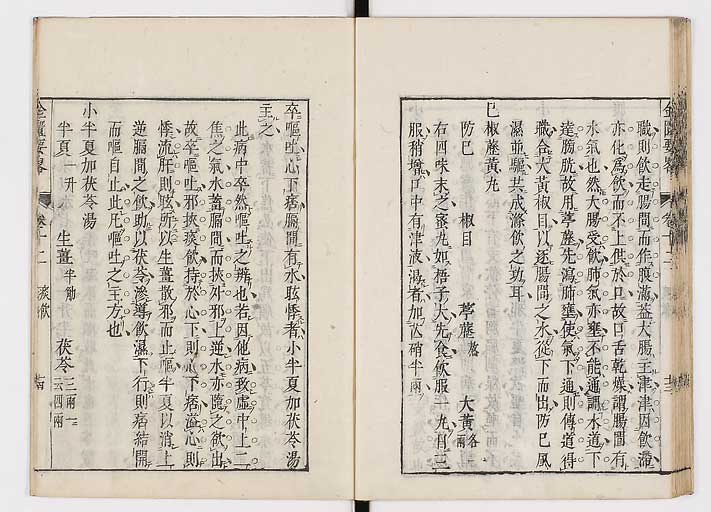 職則飲走腸間而作腹滿葢大腸主津津因飲滯
亦化爲飲而不上供於口故口舌乾燥謂腸間有
水氣也然大腸受飲肺氣亦壅不能通調水道下
達膀胱故用葶藶先瀉肺壅使氣下通則傳道得
職合大黃椒目以逐腸間之水從下而出防巳風
濕並驅共成滌飲之功耳
巳椒藶黃丸
防巳 椒目 葶藶熬 大黃各一兩
右四味末之蜜丸如梧子大先食飲服一丸日三
服稍增口中有津液渴者加芒硝半兩
金匱要畧 卷十二 痰飲 十三
卒嘔吐心下痞膈間有水眩悸者小半夏加茯苓湯
主之
此病中卒然嘔吐之辨也若因他病致虛中上二
焦之氣水蓄膈間而挾外邪上逆水亦隨之飲出
故卒嘔吐邪挾痰飲持於心下則心下痞葢心則
悸流肝則眩所以生薑散邪而止嘔半夏以消上
逆膈間之飲助以茯苓滲導飲濕下行則痞結開
而嘔自止此凡嘔吐之主方也
小半夏加茯苓湯
半夏一升 生薑半觔 茯苓三兩一云四兩
金匱要畧 卷十二 痰飲 十四